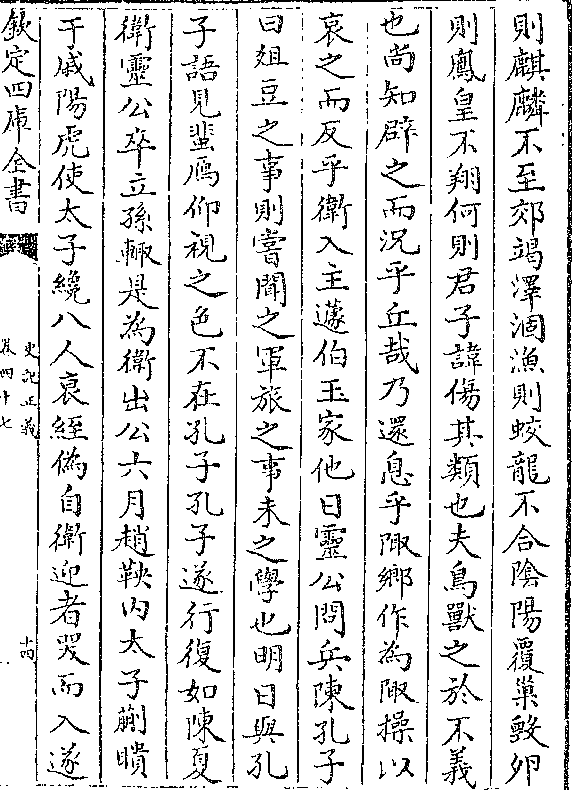 則麒麟不至郊竭澤涸漁則蛟龍不合陰陽覆巢毀卵
則鳳皇不翔何則君子諱傷其類也夫鳥獸之於不義
也尚知辟之而況乎丘哉乃還息乎陬鄉作為陬操以
哀之而反乎衛入主蘧伯玉家他日靈公問兵陳孔子
曰俎豆之事則嘗聞之軍旅之事未之學也明日與孔
子語見蜚鴈仰視之色不在孔子孔子遂行復如陳夏
衛靈公卒立孫輒是為衛出公六月趙鞅內太子蒯聵
于戚陽虎使太子絻八人衰絰偽自衛迎者哭而入遂
欽定四庫全書
史記正義
卷四十七
十四